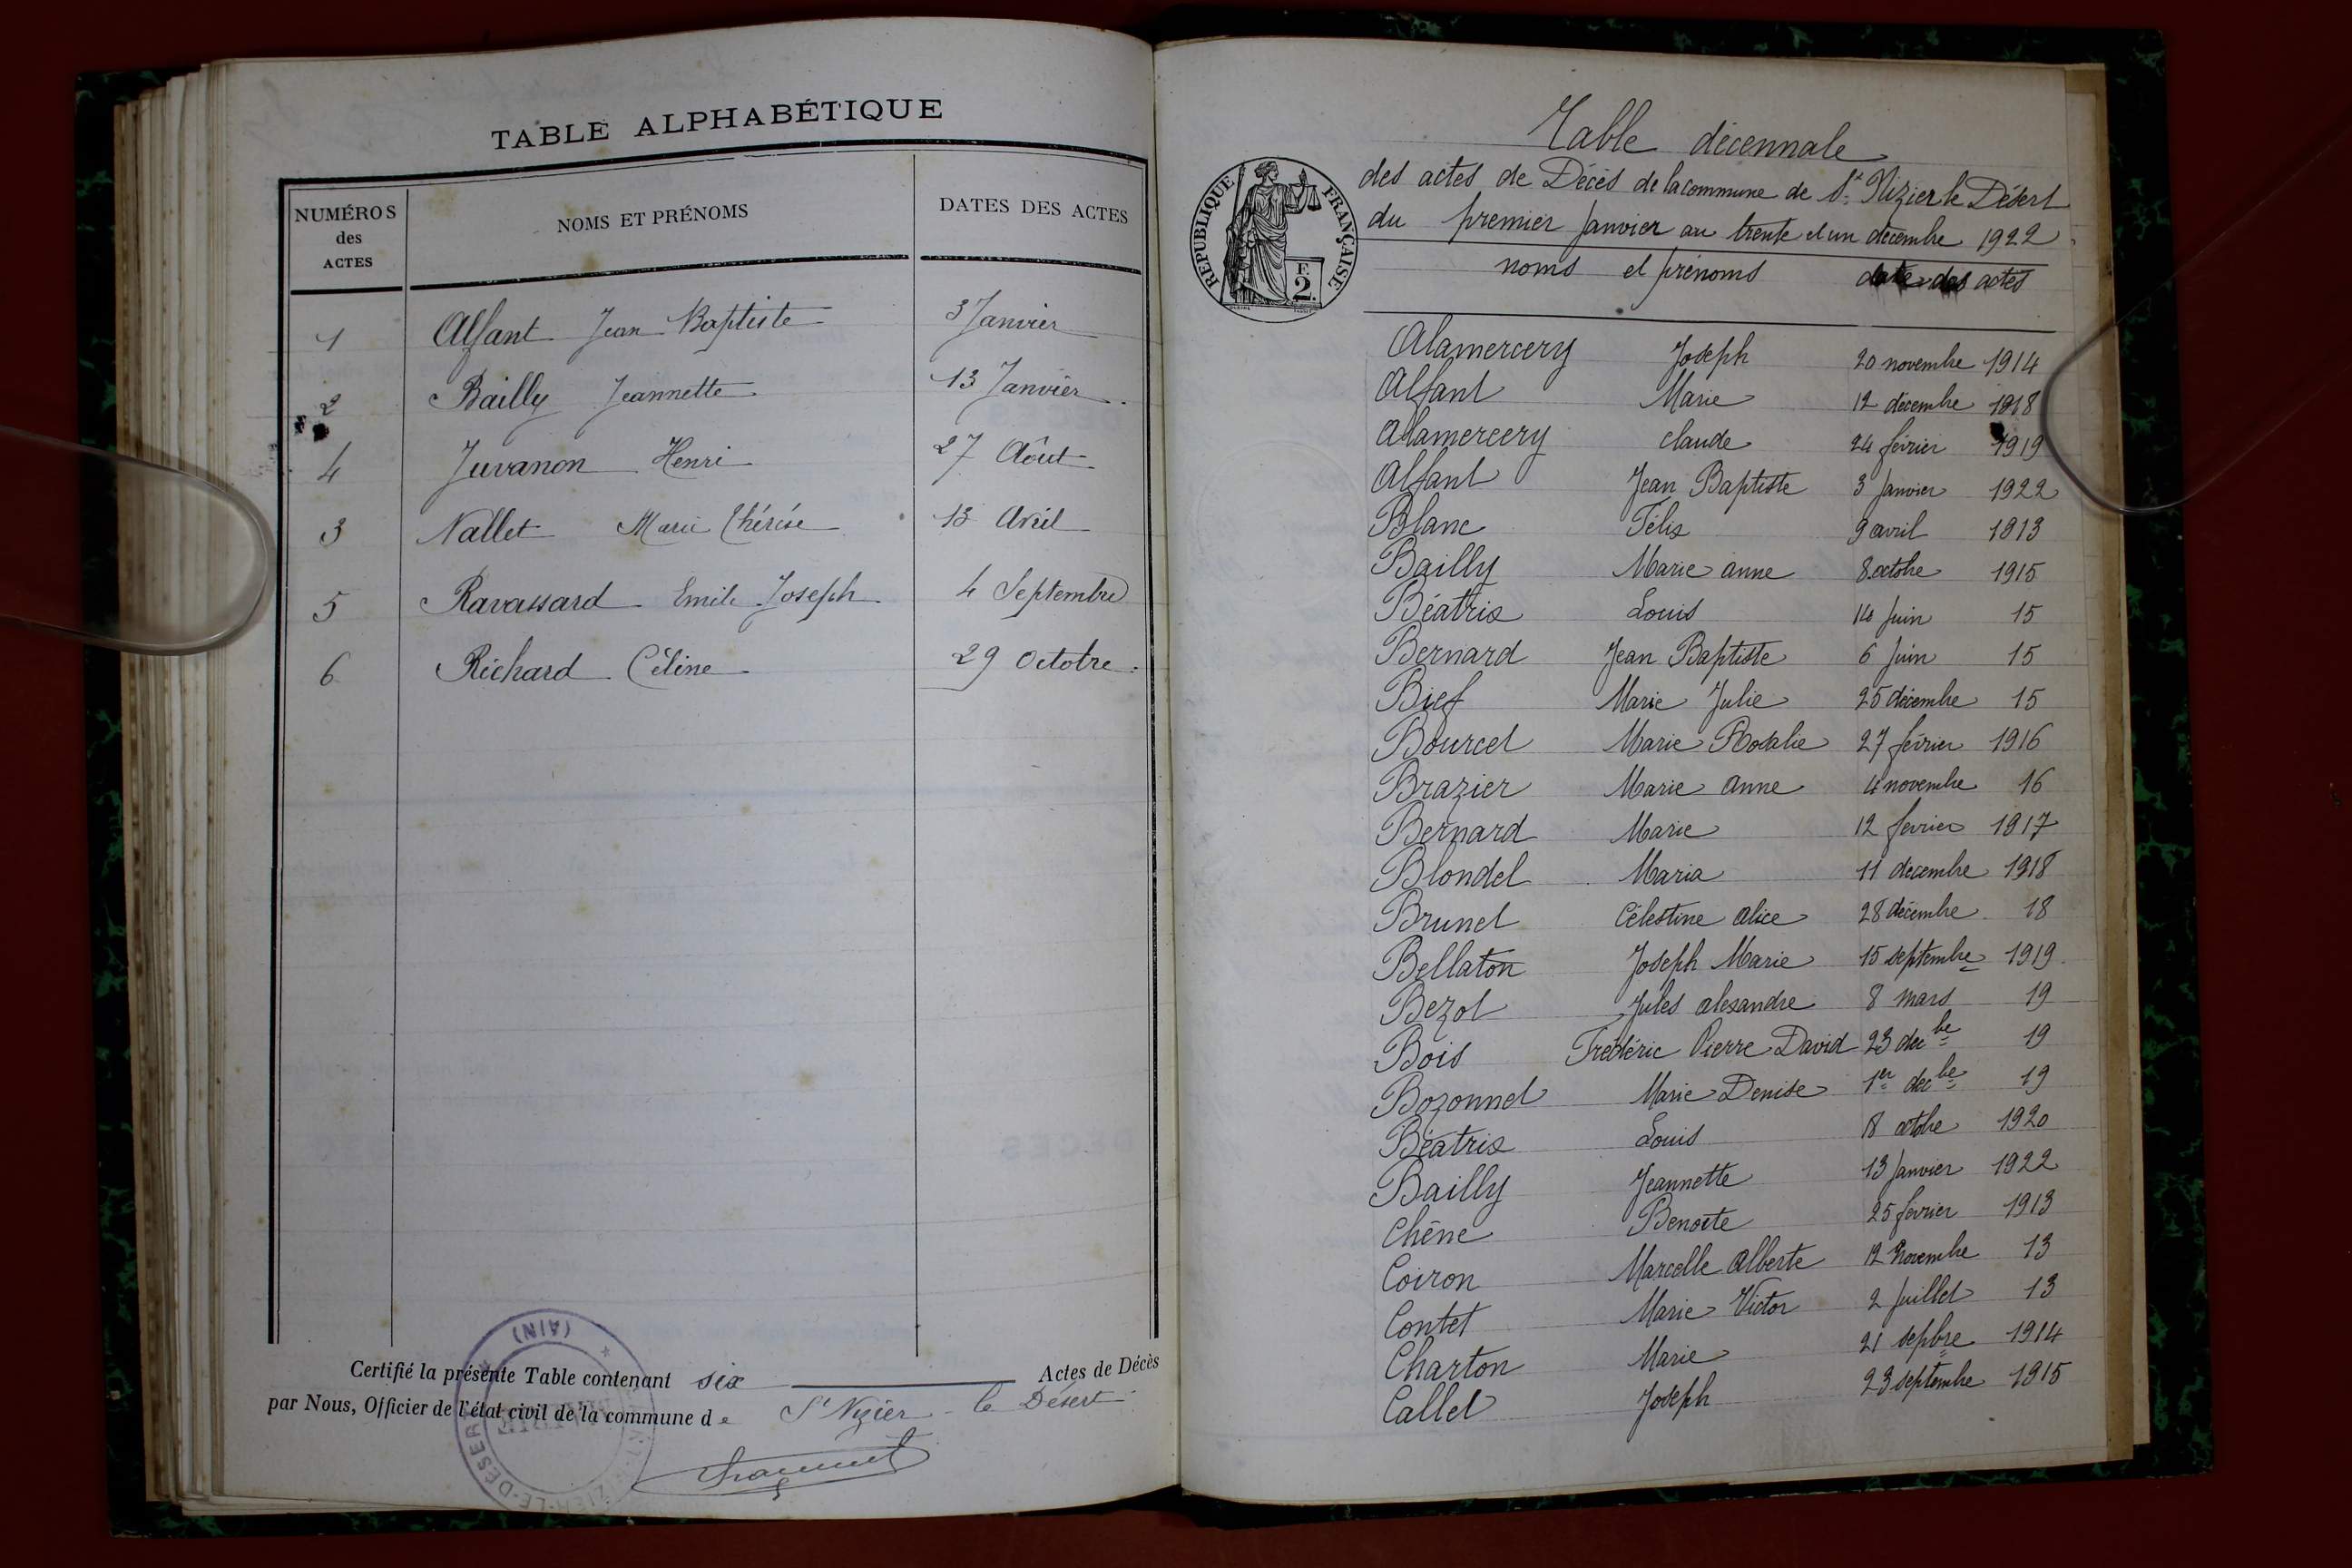 TABLE ALPHABÉTIQUE
NUMÉROS des ACTES NOMS ET PRÉNOMS DATES DES ACTES
1 Alfant Jean Baptiste 3 Janvier
2 Bailly Jeannette 13 Janvier
4 Juvanon Henri 27 Août
3 Nallet Marie Thérèse 13 Avril
5 Ravassard Emile Joseph 4 Septembre
6 Richard Céline 29 Octobre
Certifié la présente Table contenant six Actes de Décès
par Nous, Officier de l'état civil de la commune de St Nizier le Désert
(AIN)
Table décennale
des actes de Décès de la commune de St Nizier le Désert
du premier Janvier au trente et un décembre 1922
RÉPUBLIQUE FRANÇAISE
F. 2.
noms et prénoms date des actes
Alamercery Joseph 20 novembre 1914
Alfant Marie 12 décembre 1918
Alamercery Claude 24 février 1919
Alfant Jean Baptiste 3 Janvier 1922
Blanc Félix 9 avril 1913
Bailly Marie Anne 8 octobre 1915
Béatrix Louis 14 Juin 15
Bernard Jean Baptiste 6 Juin 15
Bief Marie Julie 25 décembre 15
Bourcet Marie Rosalie 27 février 1916
Brazier Marie Anne 4 novembre 16
Bernard Marie 12 février 1917
Blondel Maria 11 décembre 1918
Brunet Célestine Alice 28 décembre 18
Bellaton Joseph Marie 15 septembre 1919
Bezot Jules Alexandre 8 mars 19
Bois Frédéric Pierre David 23 decbe 19
Bozonnet Marie Denise 1er decbe 19
Béatrix Louis 18 octobre 1920
Bailly Jeannette 13 Janvier 1922
Chêne Benoîte 25 février 1913
Coiron Marcelle Alberte 12 Novembre 13
Contet Marie Victor 2 Juillet 13
Charton Marie 21 sepbre 1914
Callet Joseph 23 septembre 1915